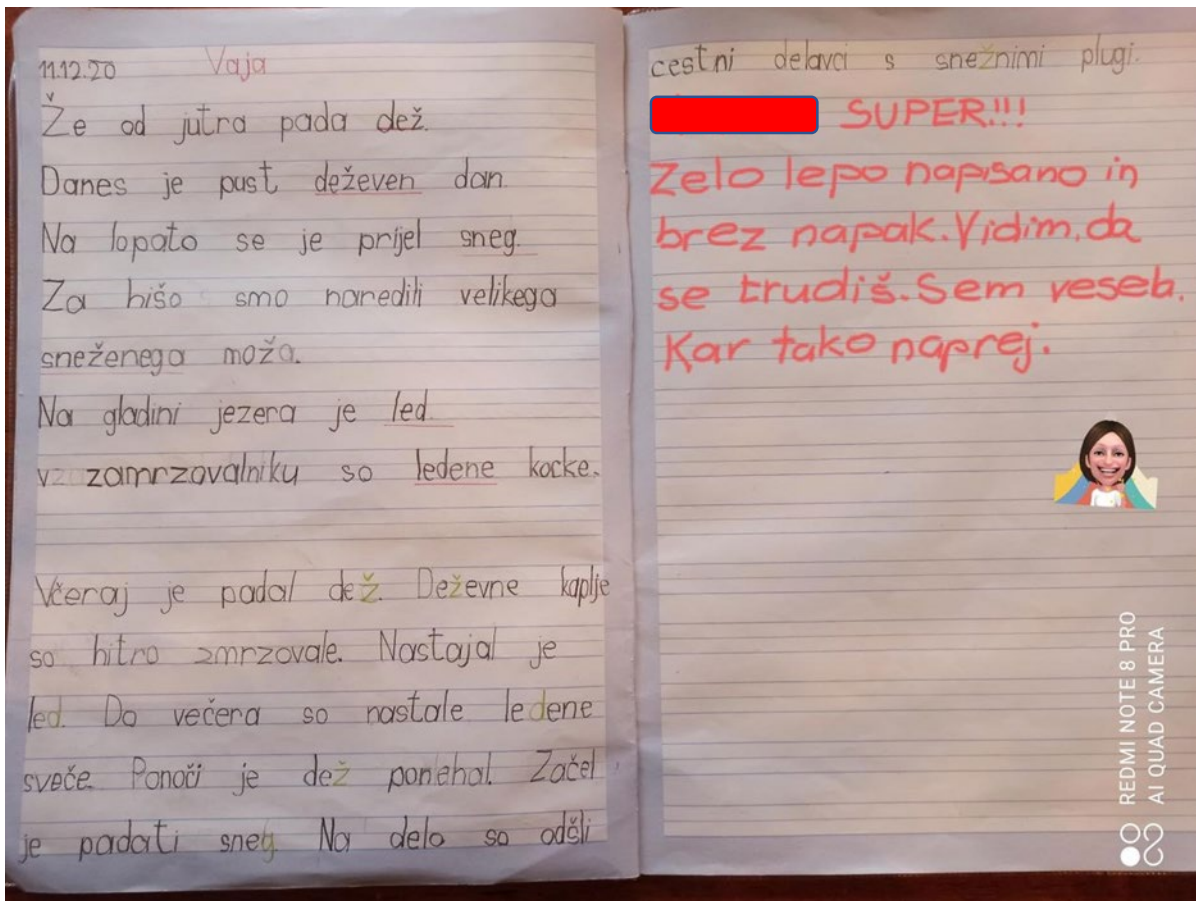 11.12.20 Vaja
Že od jutra pada dež.
Danes je pust deževen dan.
Na lopato se je prijel sneg.
Za hišo smo naredili velikega
sneženega moža.
Na gladini jezera je led.
v zamrzovalniku so ledene kocke.
Včeraj je padal dež. Deževne kaplje
so hitro zmrzovale. Nastajal je
led. Do večera so nastale ledene
sveče. Ponoči je dež ponehal. Začel
je padati sneg. Na delo so odšli
cestni delavci s snežnimi plugi.
SUPER!!!
Zelo lepo napisano in
brez napak. Vidim, da
se trudiš. Sem vesela.
Kar tako naprej.
REDMI NOTE 8 PRO
AI QUAD CAMERA